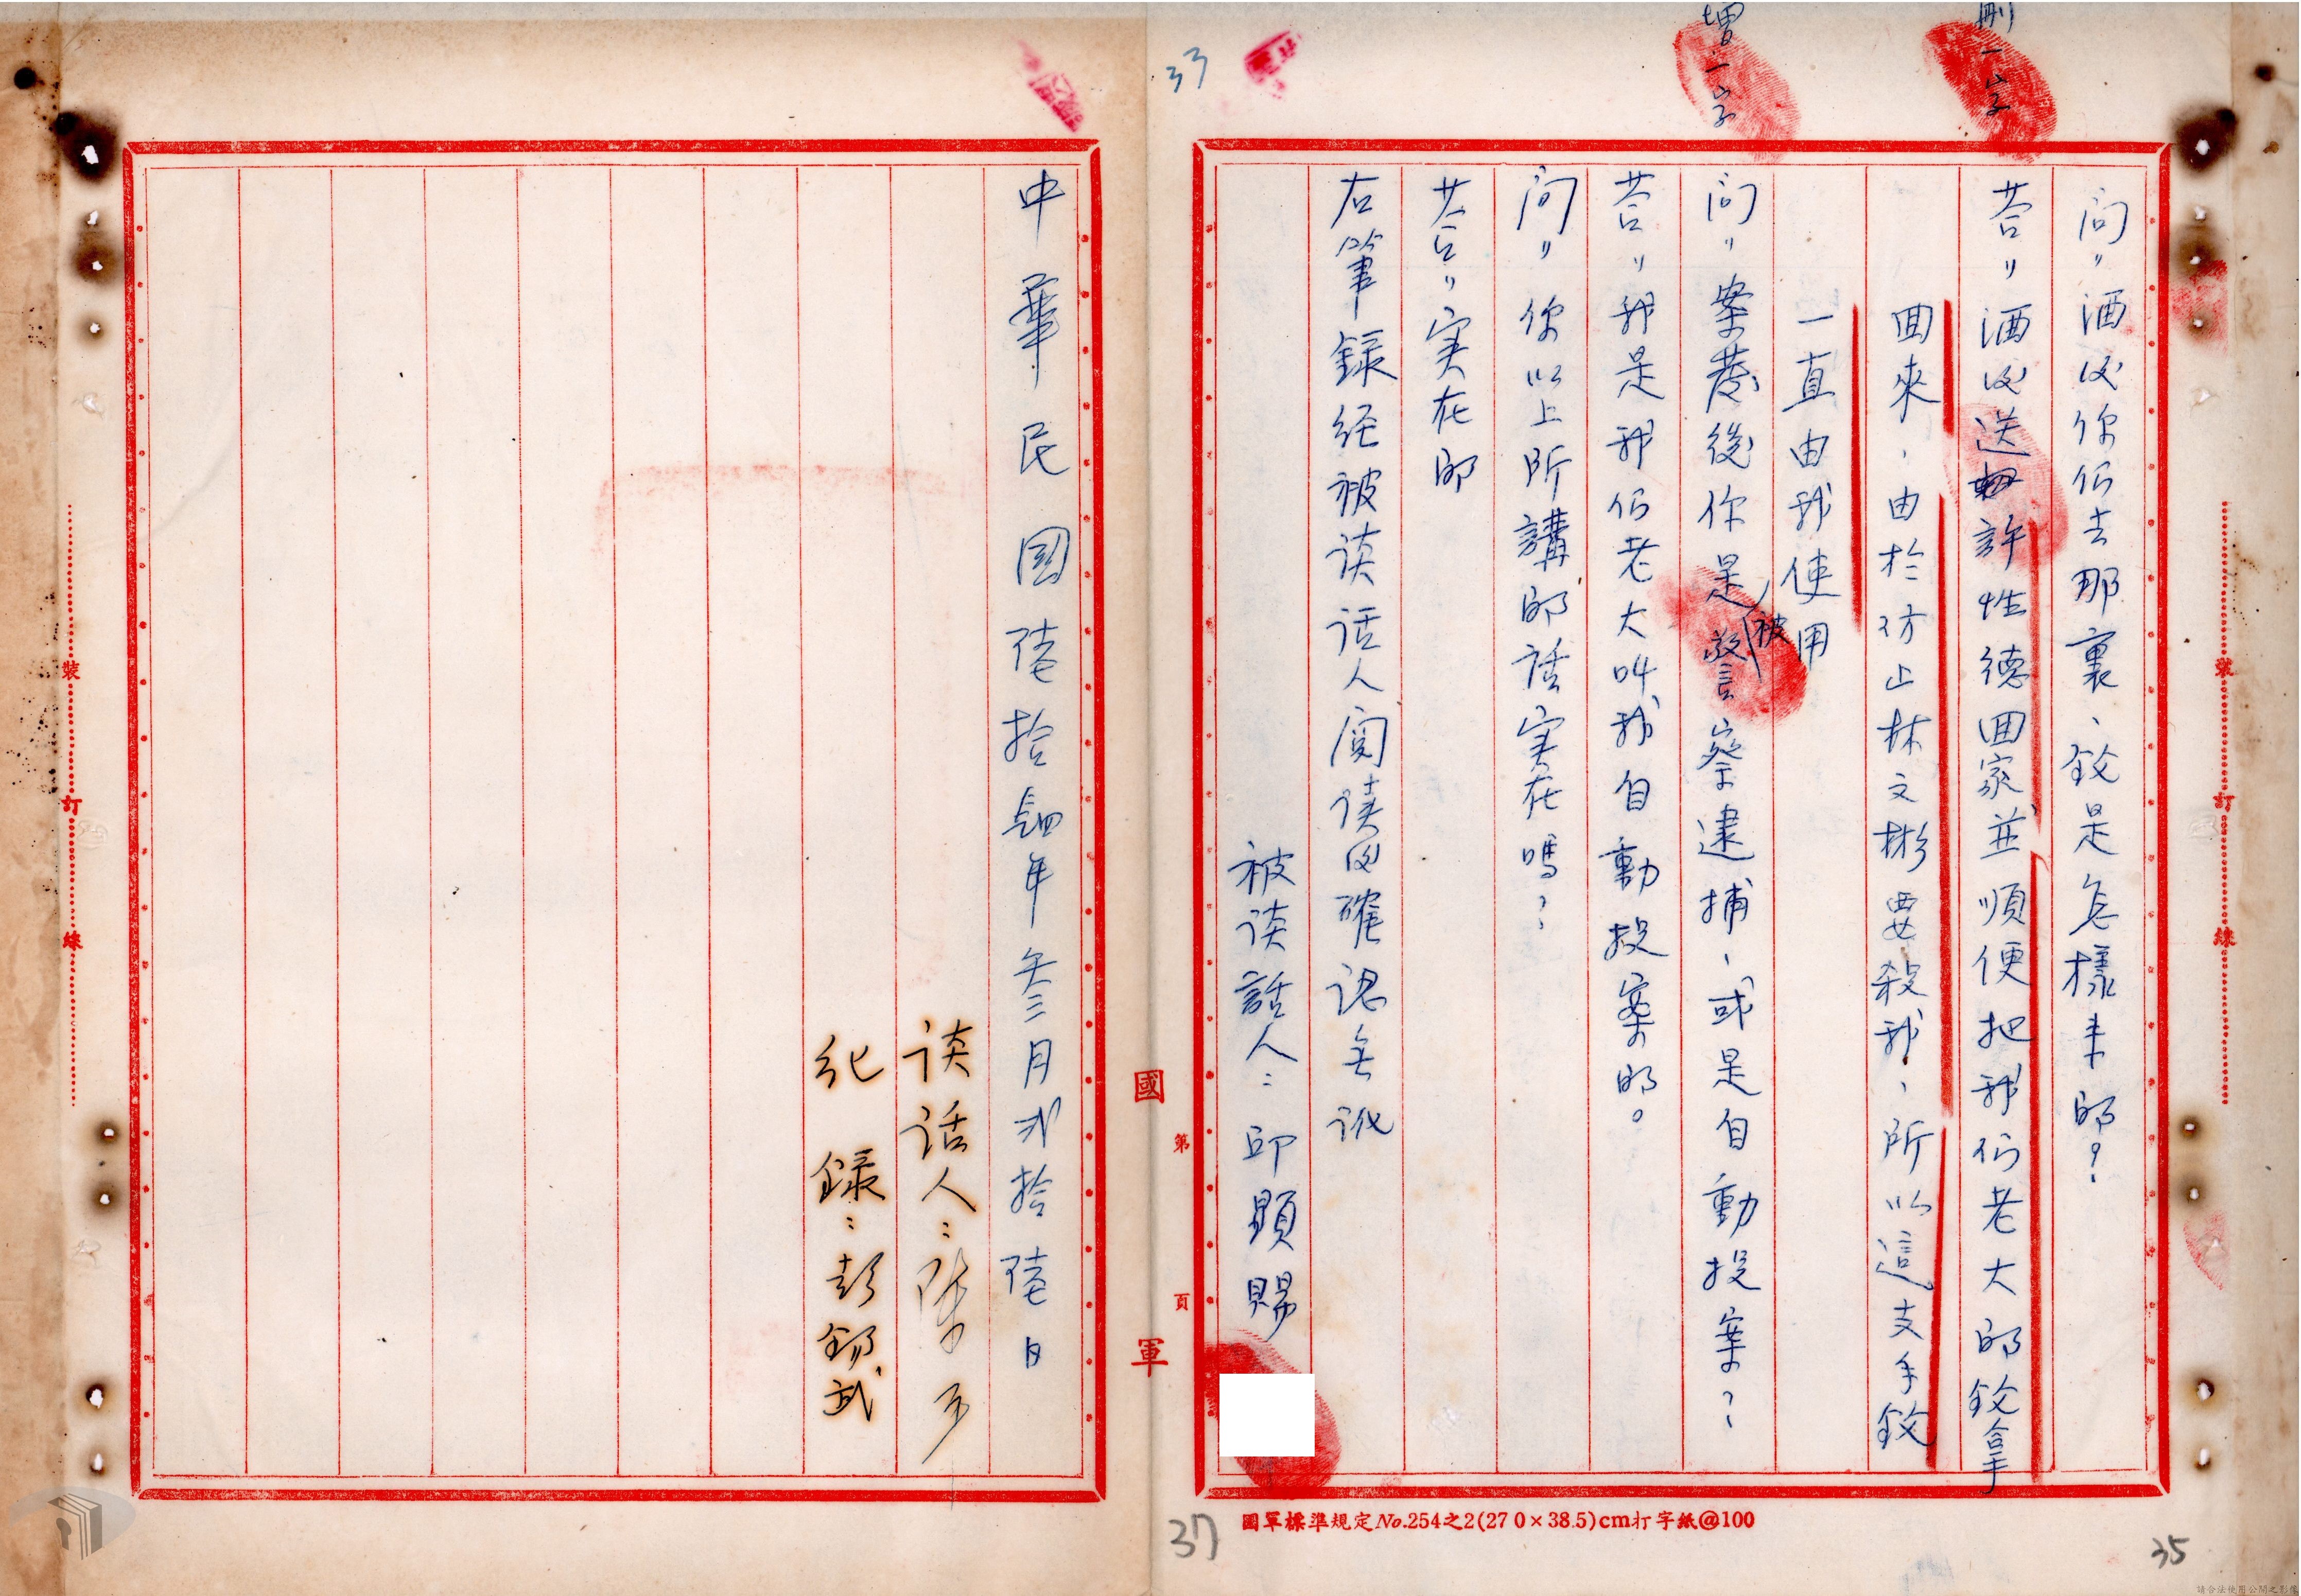 刪一字
增一字
33
問〃酒后你们去那裏、鈫是怎樣来的？
荅〃酒后送許性德囬家並順便把我们老大的鈫拿
囬來、由於仿止林文彬要殺我、所以這支手鈫
一直由我使用
問〃案發後你是被警察逮捕、或是自動投案？
荅〃我是我们老大叫我自動投案的。
問〃你以上所講的話実在嗎？
荅〃実在的
右筆録经被谈话人閱读后確認無讹
被谈話人：邱顯賜
中華民國陸拾肆年叁月弍拾陸日
谈话人：陳
纪録：彭錫武
裝訂線
裝訂線
國軍
第 頁
國軍標準規定No.254之2(27 0×38.5)cm打字紙@100
37
35
請合法使用公開之影像